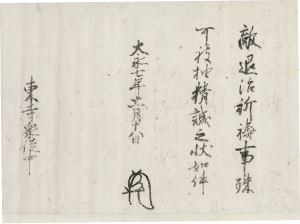 敵退治祈禱事殊
可被抽精誠之状如件
大永七年十一月十八日
東寺衆徒中